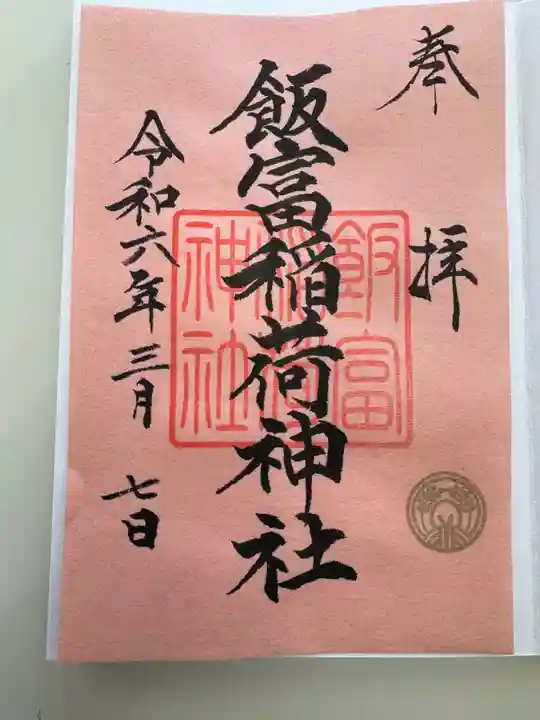 奉拝
飯富稲荷神社
飯富
稲荷
神社
令和六年三月七日